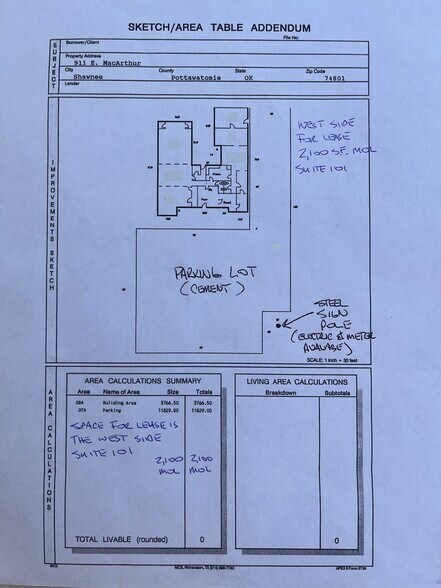 SKETCH/AREA TABLE ADDENDUM
File No:
SUBJECT
Borrower/Client
Property Address
911 E. MacArthur
City County State Zip Code
Shawnee Pottawatomie OK 74801
Lender
IMPROVEMENTS SKETCH
WEST SIDE
FOR LEASE
2,100 SF. MOL
SUITE 101
PARKING LOT
(CEMENT)
STEEL
SIGN
POLE
(ELECTRIC & METER
AVAILABLE)
SCALE: 1 inch = 30 feet
AREA CALCULATIONS
AREA CALCULATIONS SUMMARY
Area Name of Area Size Totals
GBA Building Area 3766.50 3766.50
OTH Parking 11829.00 11829.00
SPACE FOR LEASE IS
THE WEST SIDE
SUITE 101
2,100 2,100
MOL MOL
TOTAL LIVABLE (rounded) 0
LIVING AREA CALCULATIONS
Breakdown Subtotals
0